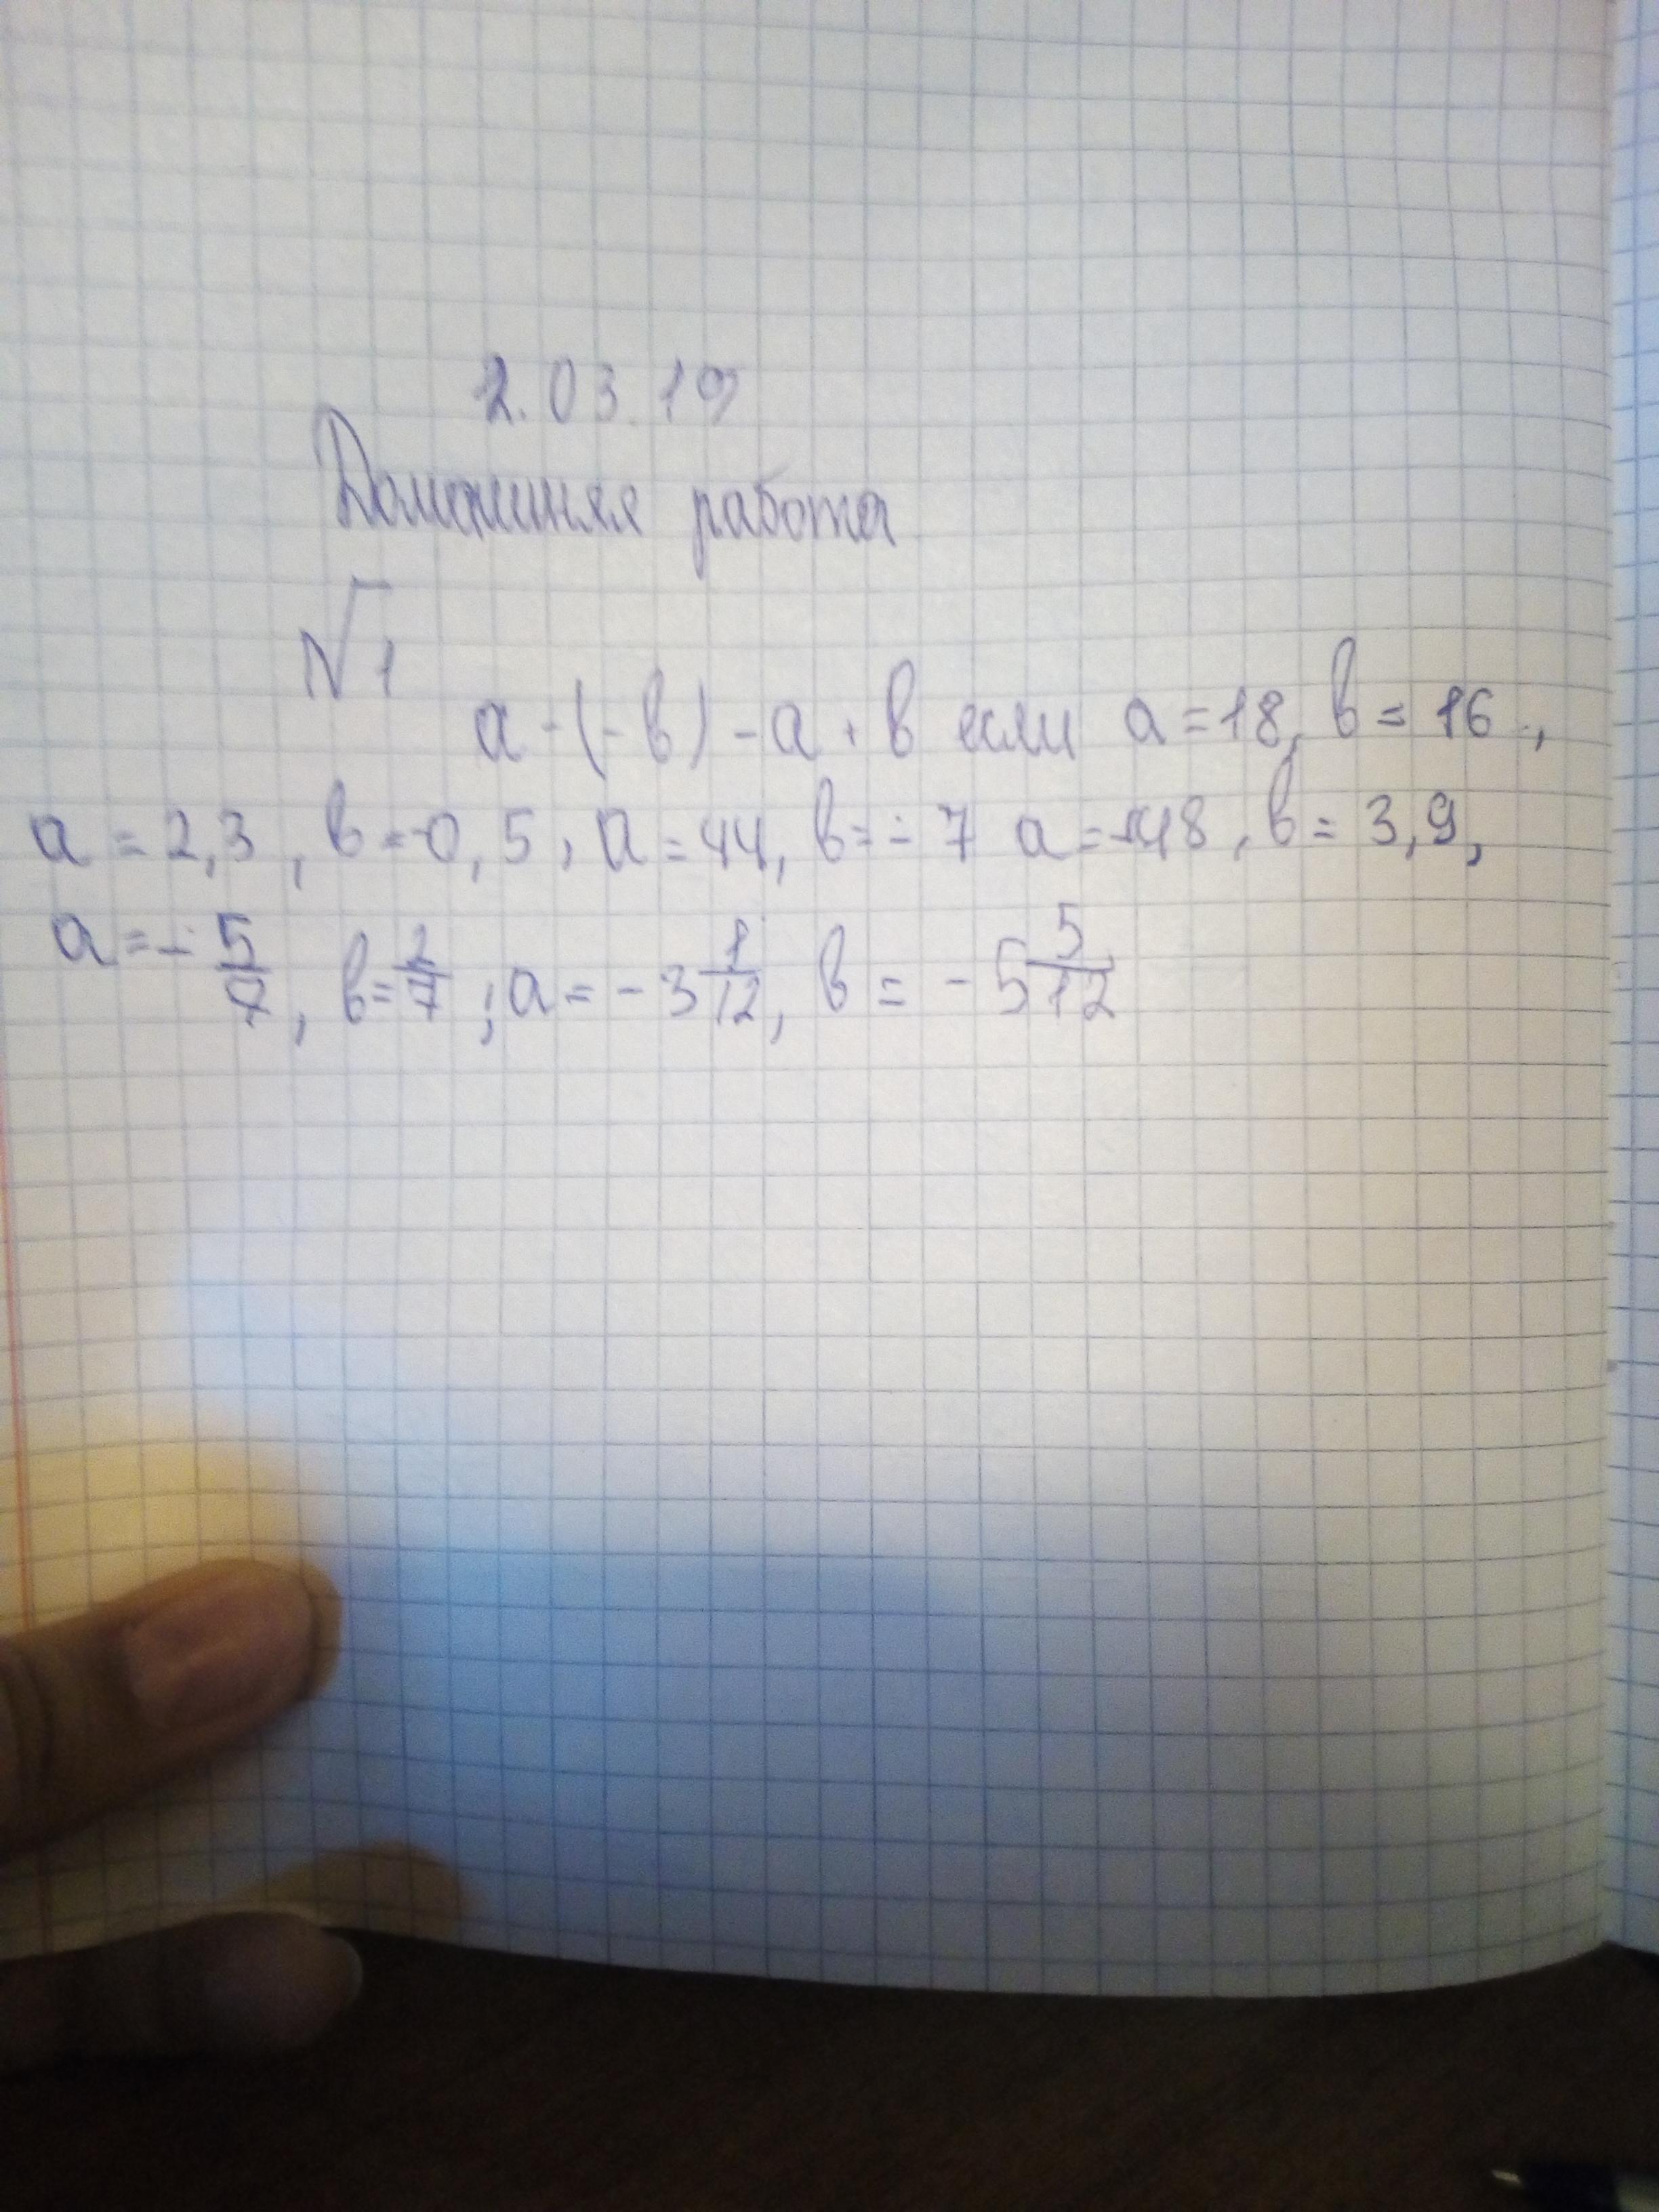 2.03.19
Домашняя работа
№1
a - (- в) - a + в если a = 18, в = 16,
a = 2,3, в = -0,5, a = 44, в = - 7 a = -48, в = 3,9,
a = - 5/7, в = 2/7; a = - 3 1/12, в = - 5 5/12